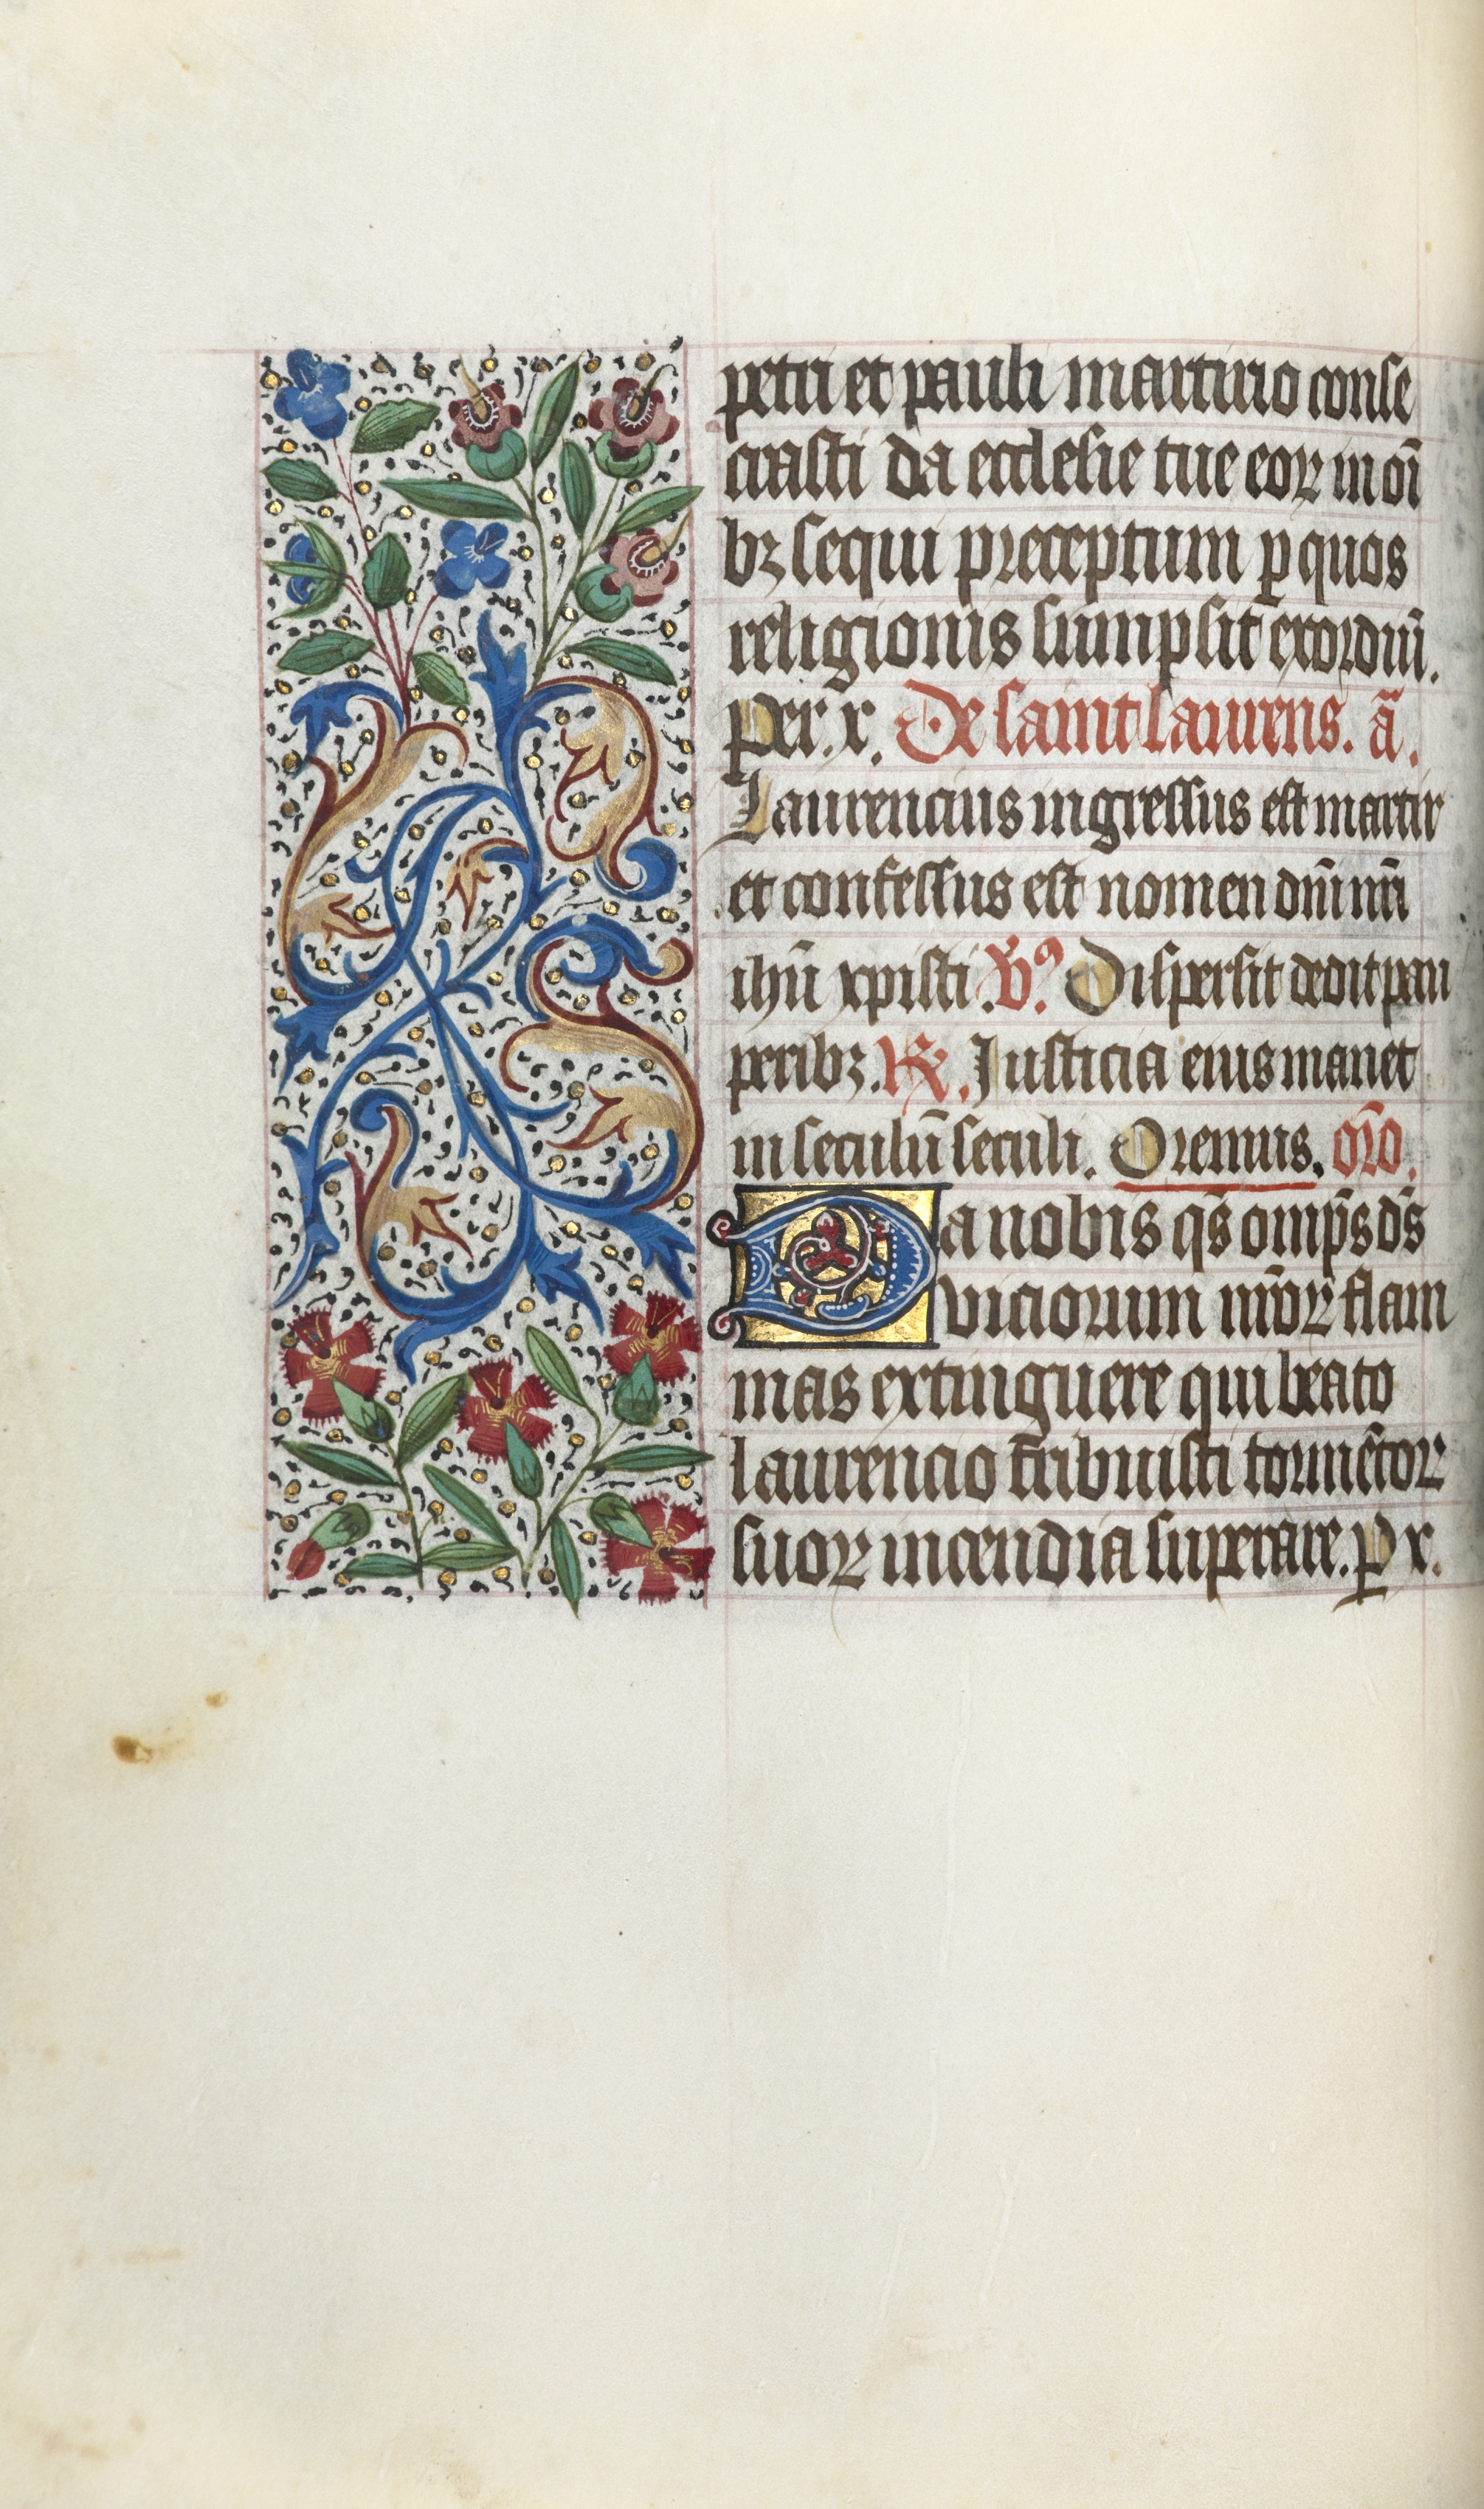 petri et pauli martirio conse
crasti da ecclesie tue eoꝝ in oı̄
bꝫ sequi preceptum ꝑ quos
religionis sumpsit exordiū.
Per. x. De saint laurens. ā.
Laurencius ingressus est martir
et confessus est nomen dn̄i nr̄i
ihū xpisti. v̄ꝰ. Dispersit dedit pau
peribꝫ. ℟. Justicia eius manet
in seculū seculi. Oremus. or̄o.
Da nobis qs̄ omp̄s ds̄
viciorum nr̄oꝝ flam
mas extinguere qui beato
laurencio tribuisti tormētoꝝ
suoꝝ incendia superare. ꝑ x.